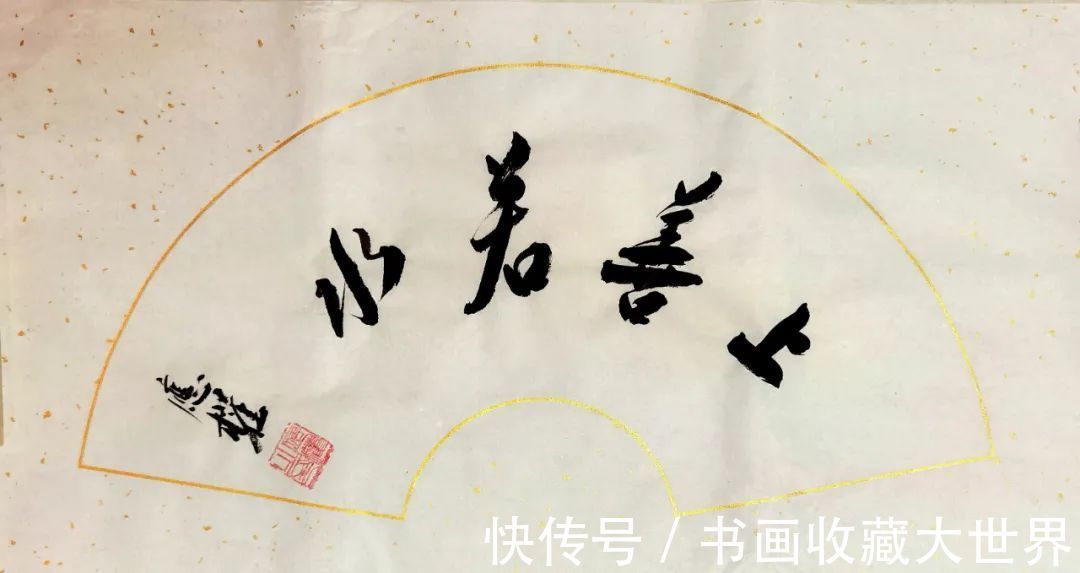 上善若水
快传号 / 书画收藏大世界